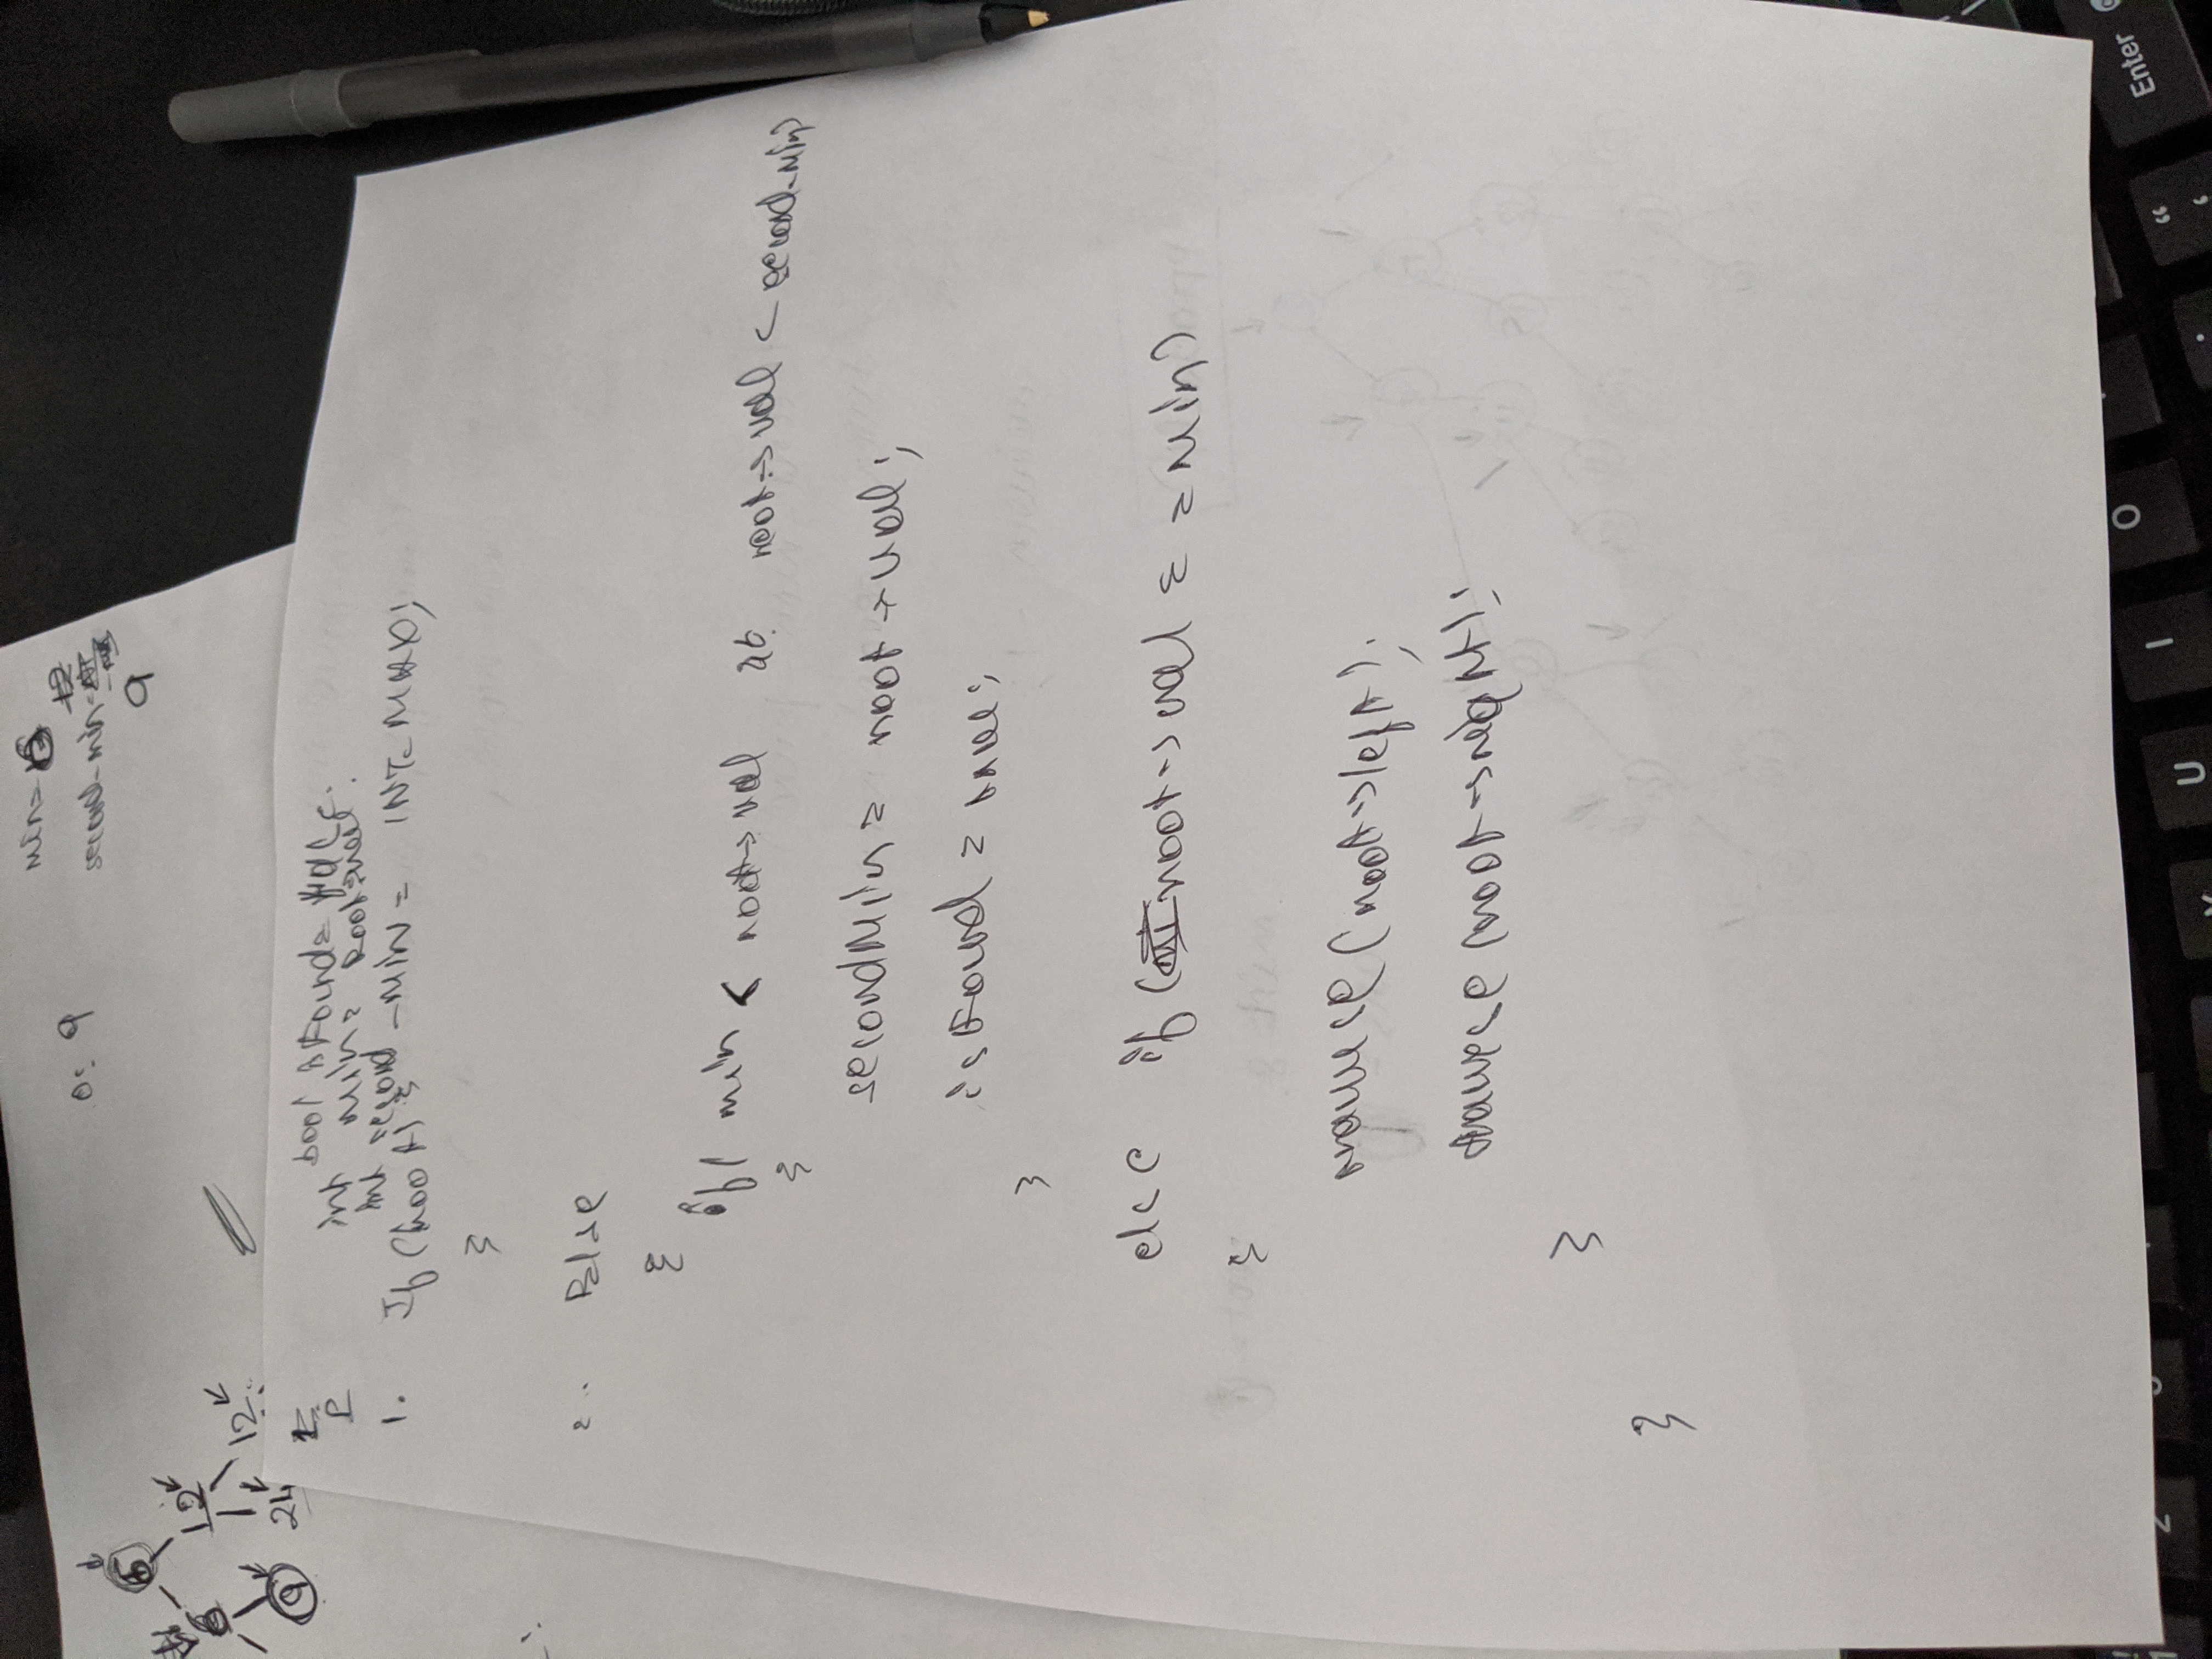 min=
0: 9
12
second-min=
9
6
6
12
9
24
12
bool isFound= false.
int min= Root→val.
int second-Min = INT_MAX;
1. If (root) {
}
2. Else
{
if( min < root→val && root→val < second-Min)
{
secondMin= root→val;
isFound = true;
}
else if (root→val == Min)
{
traverse (root→left);
traverse (root→right);
}
}
Enter
O
I
U
Y
2